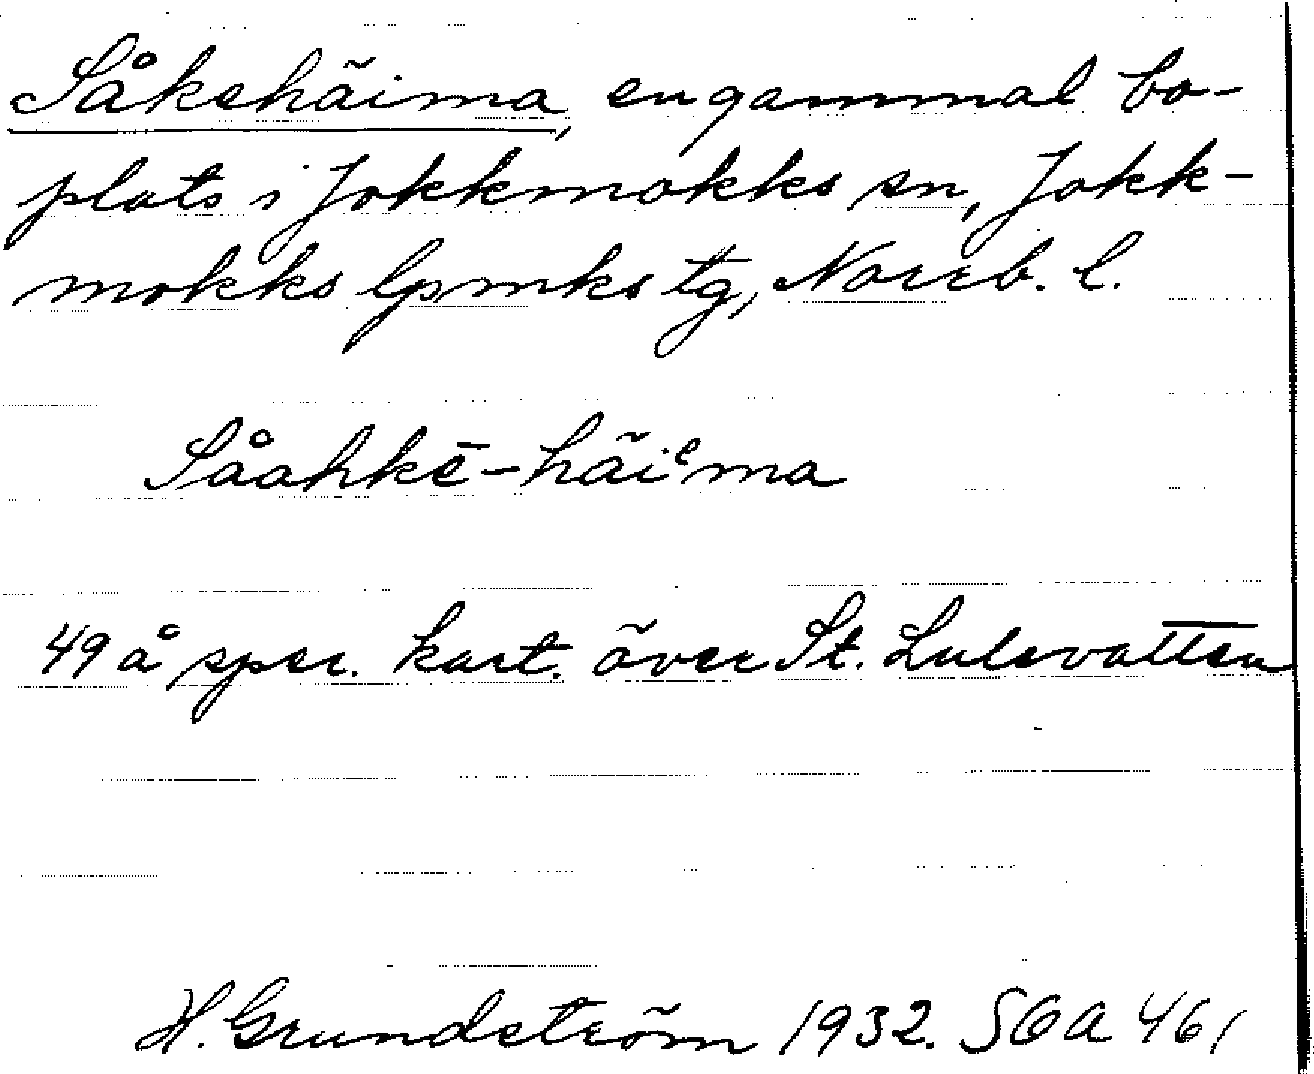 Såkehäima, en gammal bo-
plats i Jokkmokks sn, Jokk-
mokks lpmks tg, Norrb. l.
Såahkē-häiᵉma
49 å spec. kart. över St. Lulevatten
H. Grundström 1932. SOA 461